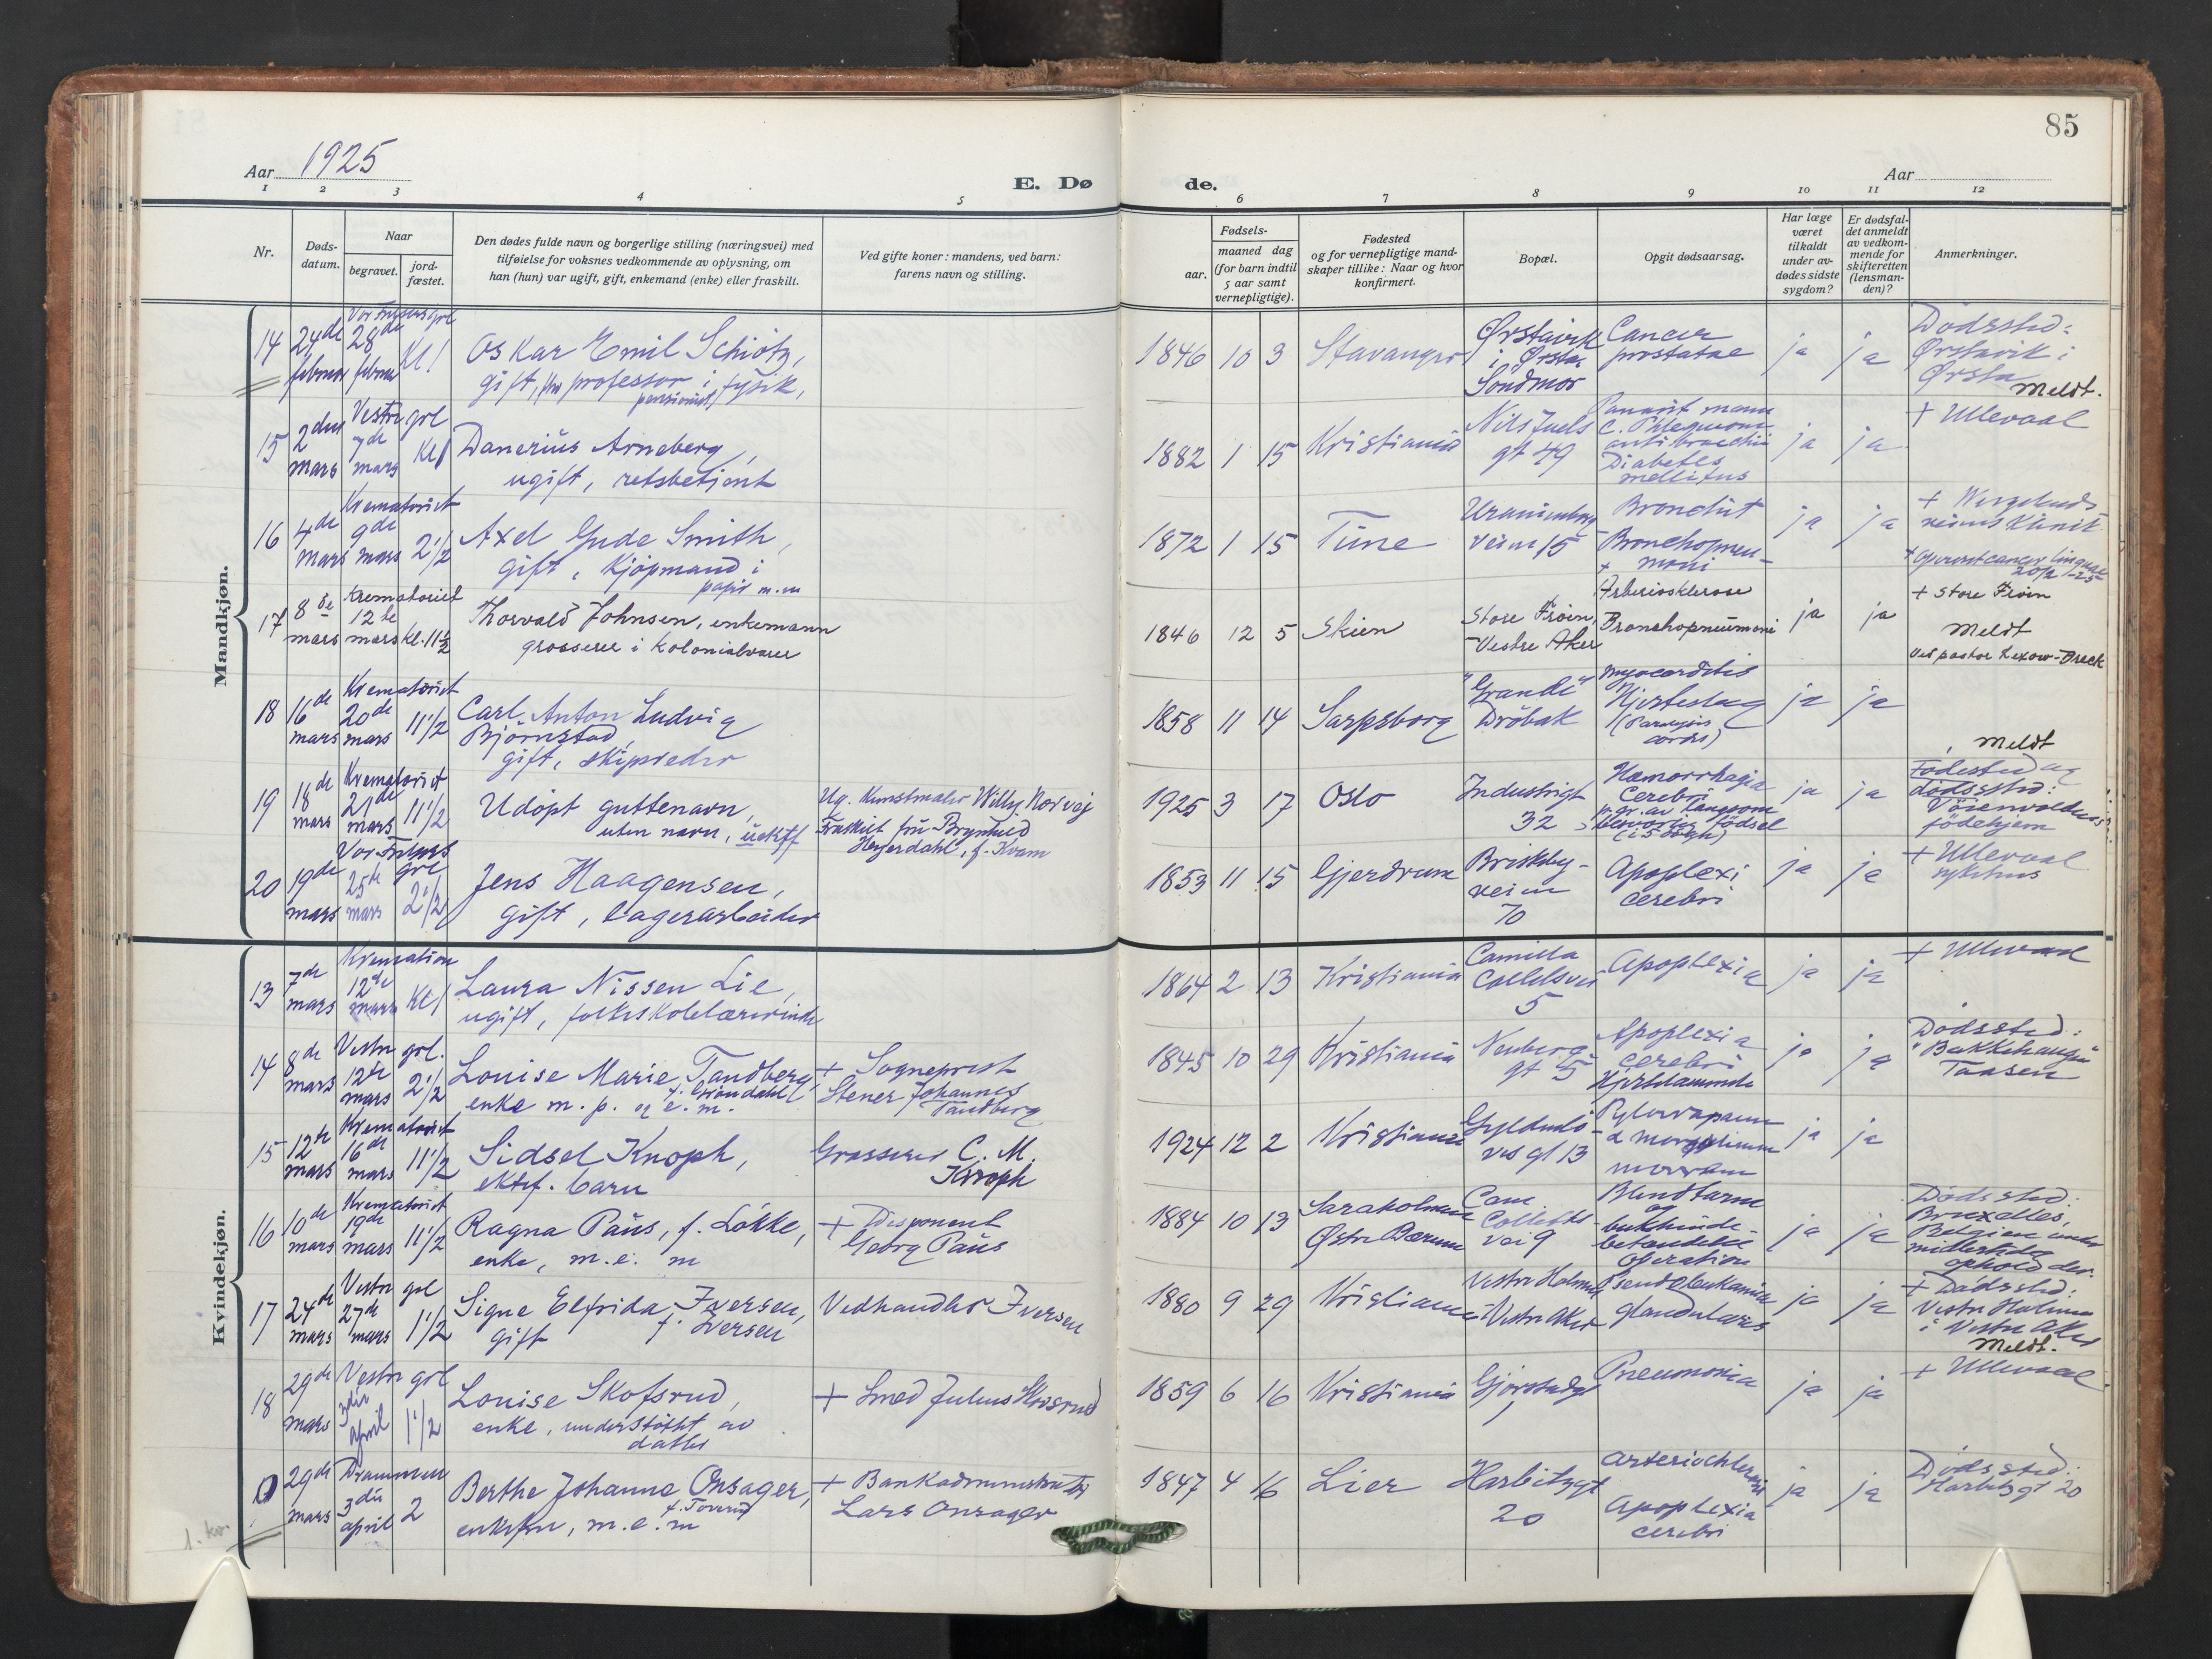 85
Aar 1925
E. Dø
de.
Aar
1 2 3 4 5 6 7 8 9 10 11 12
Nr.
Døds-
datum.
Naar
begravet.
jord-
fæstet.
Den dødes fulde navn og borgerlige stilling (næringsvei) med
tilføielse for voksnes vedkommende av oplysning, om
han (hun) var ugift, gift, enkemand (enke) eller fraskilt.
Ved gifte koner: mandens, ved barn:
farens navn og stilling.
Fødsels-
aar.
maaned dag
(for barn indtil
5 aar samt
vernepligtige).
Fødested
og for vernepligtige mand-
skaper tillike: Naar og hvor
konfirmert.
Bopæl.
Opgit dødsaarsag.
Har læge
været
tilkaldt
under av-
dødes sidste
sygdom?
Er dødsfal-
det anmeldt
av vedkom-
mende for
skifteretten
(lensman-
den)?
Anmerkninger.
Mandkjøn.
14 24de februar
Vor Frelsers grl
28de februar Kl 1
Oskar Emil Schiötz,
gift, professor i fysik,
pensionist
1846 10 3 Stavanger
Ørstavik
i Ørsta
Söndmör
Cancer
prostatae
ja ja
Dödssted:
Ørstavik i
Ørsta
Meldt.
15 2den mars
Vestre grl
7de mars Kl 1
Danerius Arneberg,
ugift, retsbetjent
1882 1 15 Kristiania
Nils Juels
gt 49
antibrachii
Diabetes
mellitus
ja ja
+ Ullevaal
16 4de mars
Krematoriet
9de mars 2 1/2
Axel Gude Smith,
gift, kjöpmand i
papir m.m
1872 1 15 Tune
Uranienborg
veien 15
Bronchit
Bronchopneu-
moni
ja ja
+ Wergelands
veiens Klinik
+ operert cancer linguae
20/2 -25
17 8de mars
Krematoriet
12te mars kl. 11 1/2
Thorvald Johnsen, enkemann
grosserer i kolonialvarer
1846 12 5 Skien
Store Frøen,
Vestre Aker
Arteriosklerose
Bronchopneumoni
ja ja
+ Store Frøen
Meldt
ved pastor Lexow-Breck
18 16de mars
Krematoriet
20de mars 11 1/2
Carl Anton Ludvig
Björnstad,
gift, skipsreder
1858 11 14 Sarpsborg
"Grande"
Dröbak
Myocarditis
Hjerteslag
(Paralysis
cordis)
ja ja
Meldt
19 18de mars
Krematoriet
21de mars 11 1/2
Udöpt guttenavn,
uten navn, uektf
Ug. Kunstmaler Willy Norvej
Fraskilt fru Brynhild
Heyerdahl, f. Kvam
1925 3 17 Oslo
Industrigt
32
Hæmorrhagia
Cerebri
p.gr. av langsom
besværlig födsel
ja ja
Födested og
dödssted:
Vöienvoldens
födehjem
20 19de mars
Vor Frelsers grl
25de mars 2 1/2
Jens Haagensen,
gift, lagerarbeider
1853 11 15 Gjerdrum
Briskeby-
veien
70
Apoplexi
cerebri
ja ja
+ Ullevaal
sykehus
Kvindekjøn.
13 7de mars
Kremation
12te mars Kl 1
Laura Nissen Lie,
ugift, folkeskolelærerinde
1864 2 13 Kristiania
Camilla
Collettsvei
5
Apoplexia
ja ja
+ Ullevaal
14 8de mars
Vestre grl.
12te mars 2 1/2
Louise Marie Tandberg,
f. Gröndahl
enke m. p. og e. m.
+ Sogneprest
Stener Johannes
Tandberg
1845 10 29 Kristiania
Neuberg-
gt 5
Apoplexia
cerebri
Hjertelammelse
ja ja
Dødssted:
"Bakkehaugen"
Taasen
15 12te mars
Krematoriet
16de mars 11 1/2
Sidsel Knoph,
ektef. barn
Grosserer C. M.
Knoph
1924 12 2 Kristiania
Gyldenlö-
ves gt 13
ja ja
16 10de mars
Krematoriet
19de mars 11 1/2
Ragna Paus, f. Lökke,
enke, m. e. m
+ Disponent
Georg Paus
1884 10 13 Saraholmen
Østre Bærum
Cam.
Colletts
vei 9
Blindtarm
og
bukhinde-
betændelse
Operation
ja ja
Dødssted:
Bruxelles,
Belgien under
midlertidig
ophold der.
17 24de mars
Vestre grl
27de mars 1 1/2
Signe Elfrida Iversen,
f. Iversen
gift
Vedhandler Iversen
1880 9 29 Kristiania
Vestre Holmen
Vestre Aker
Pseudoleukæmia
glandularis
ja ja
+ Dödssted:
Vestre Holmen
i Vestre Aker
Meldt.
18 29de mars
Vestre grl
3die april 1 1/2
Louise Skofsrud,
enke, understöttet av
datter
+ Smed Julius Skofsrud
1859 6 16 Kristiania
Gjörstadgt
1
Pneumonia
ja ja
+ Ullevaal
29de mars
Drammen
3die april 2
Berthe Johanne Onsager,
f. Toverud
enkefru, m. e. m
+ Bankadministrator
Lars Onsager
1847 4 16 Lier
Harbitzgt
20
Apoplexia
cerebri
ja ja
Dødssted:
Harbitzgt 20
1. kv.